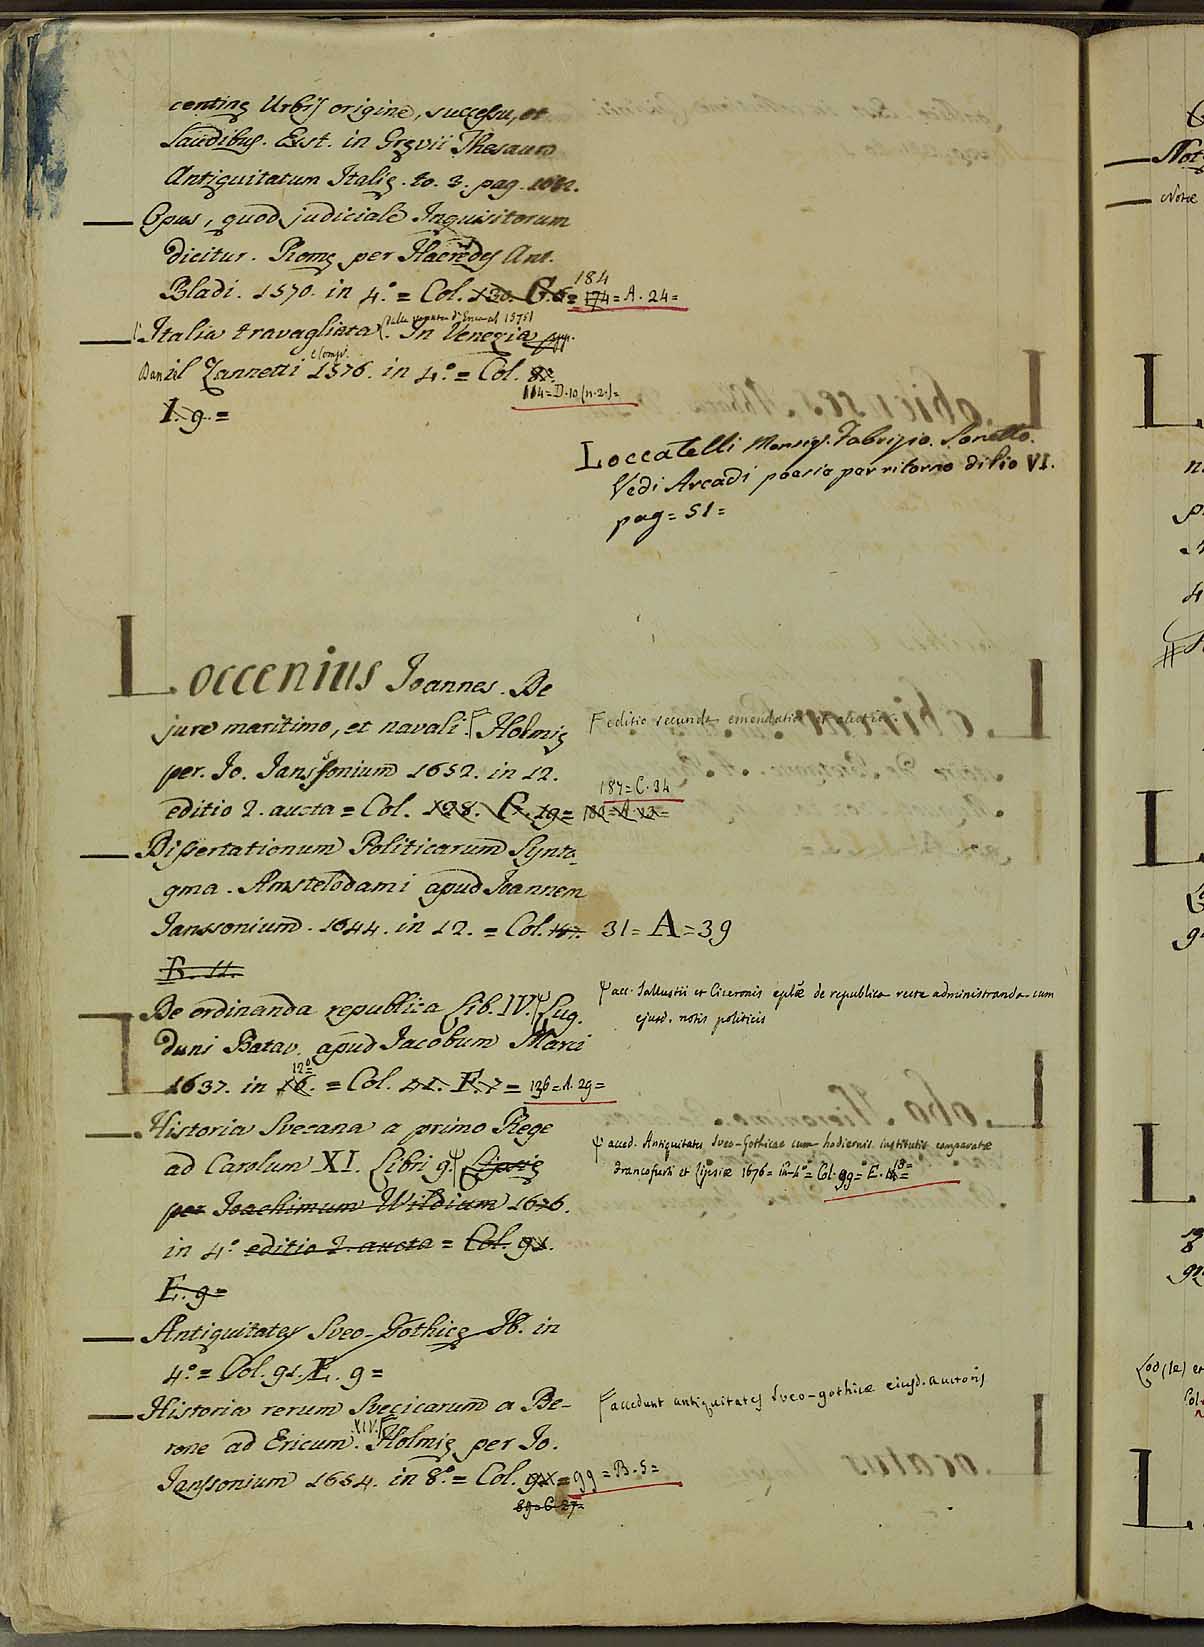 centinę Urbis origine, successu, et
Laudibus. Exst. in Gręvii Thesauro
Antiquitatum Italię. to. 3. pag.
— Opus, quod judiciale Inquisitorum
dicitur. Romę per Haeredes Ant.
Bladi. 1570. in 4.° = Col. 130. C. 6 = 174 = A. 24 =
184
— L'Italia travagliata. In Venezia
Daniel Zannetti e Comp. 1576. in 4.° = Col.
114 = D. 10 (n. 2.) =
I. 9. =
Loccatelli Monsig. Fabrizio. Sonetto.
Vedi Arcadi poesie per ritorno di Pio VI.
pag = 51 =
Loccenius Joannes. De
jure maritimo, et navali. Holmię
editio secunda emendatior et auctior.
per. Jo. Janssonium 1652. in 12.
187 = C. 34
editio 2. aucta = Col. 128. C. 19 =
— Dissertationum Politicarum Synta-
gma. Amstelodami apud Joannem
Janssonium. 1644. in 12. = Col. 31 = A = 39
E. 11.
— De ordinanda republica Lib. IV. Lug-
acc. Sallustii et Ciceronis eplæ de republica recte administranda cum
ejusd. notis politicis
duni Batav. apud Jacobum Marci
12°
1637. in 16. = Col. 11. F. 7 = 136 = A. 29 =
— Historia Svecana a primo Rege
ad Carolum XI. Libri 9. Lipsię
acced. Antiquitates Sveo-Gothicae cum hodiernis institutis comparatæ
Francofurti et Lipsiæ 1676 = in 4° = Col. 99 = E. 18 =
per Joachimum Wildium 1676.
in 4.° editio 2. aucta = Col. 91.
E. 9 =
— Antiquitates Sveo-Gothicę Ib. in
4.° = Col. 91. E. 9 =
— Historia rerum Svecicarum a Be-
accedunt antiquitates Sveo-gothicæ ejusd. auctoris
rone ad Ericum XIV. Holmię per Jo.
Janssonium 1654. in 8.° = Col. 91 = 99 = B. 5 =
89 = C. 27 =
Not
Notæ